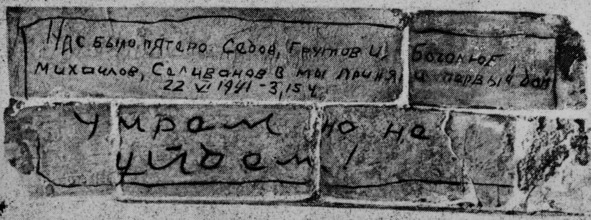 Нас было пятеро Седов, Грутов И, Боголюб,
Михаилов, Селиванов В мы приняли первый бой
22 VI 1941 - 3,15 ч
Умрем но не
уйдем!